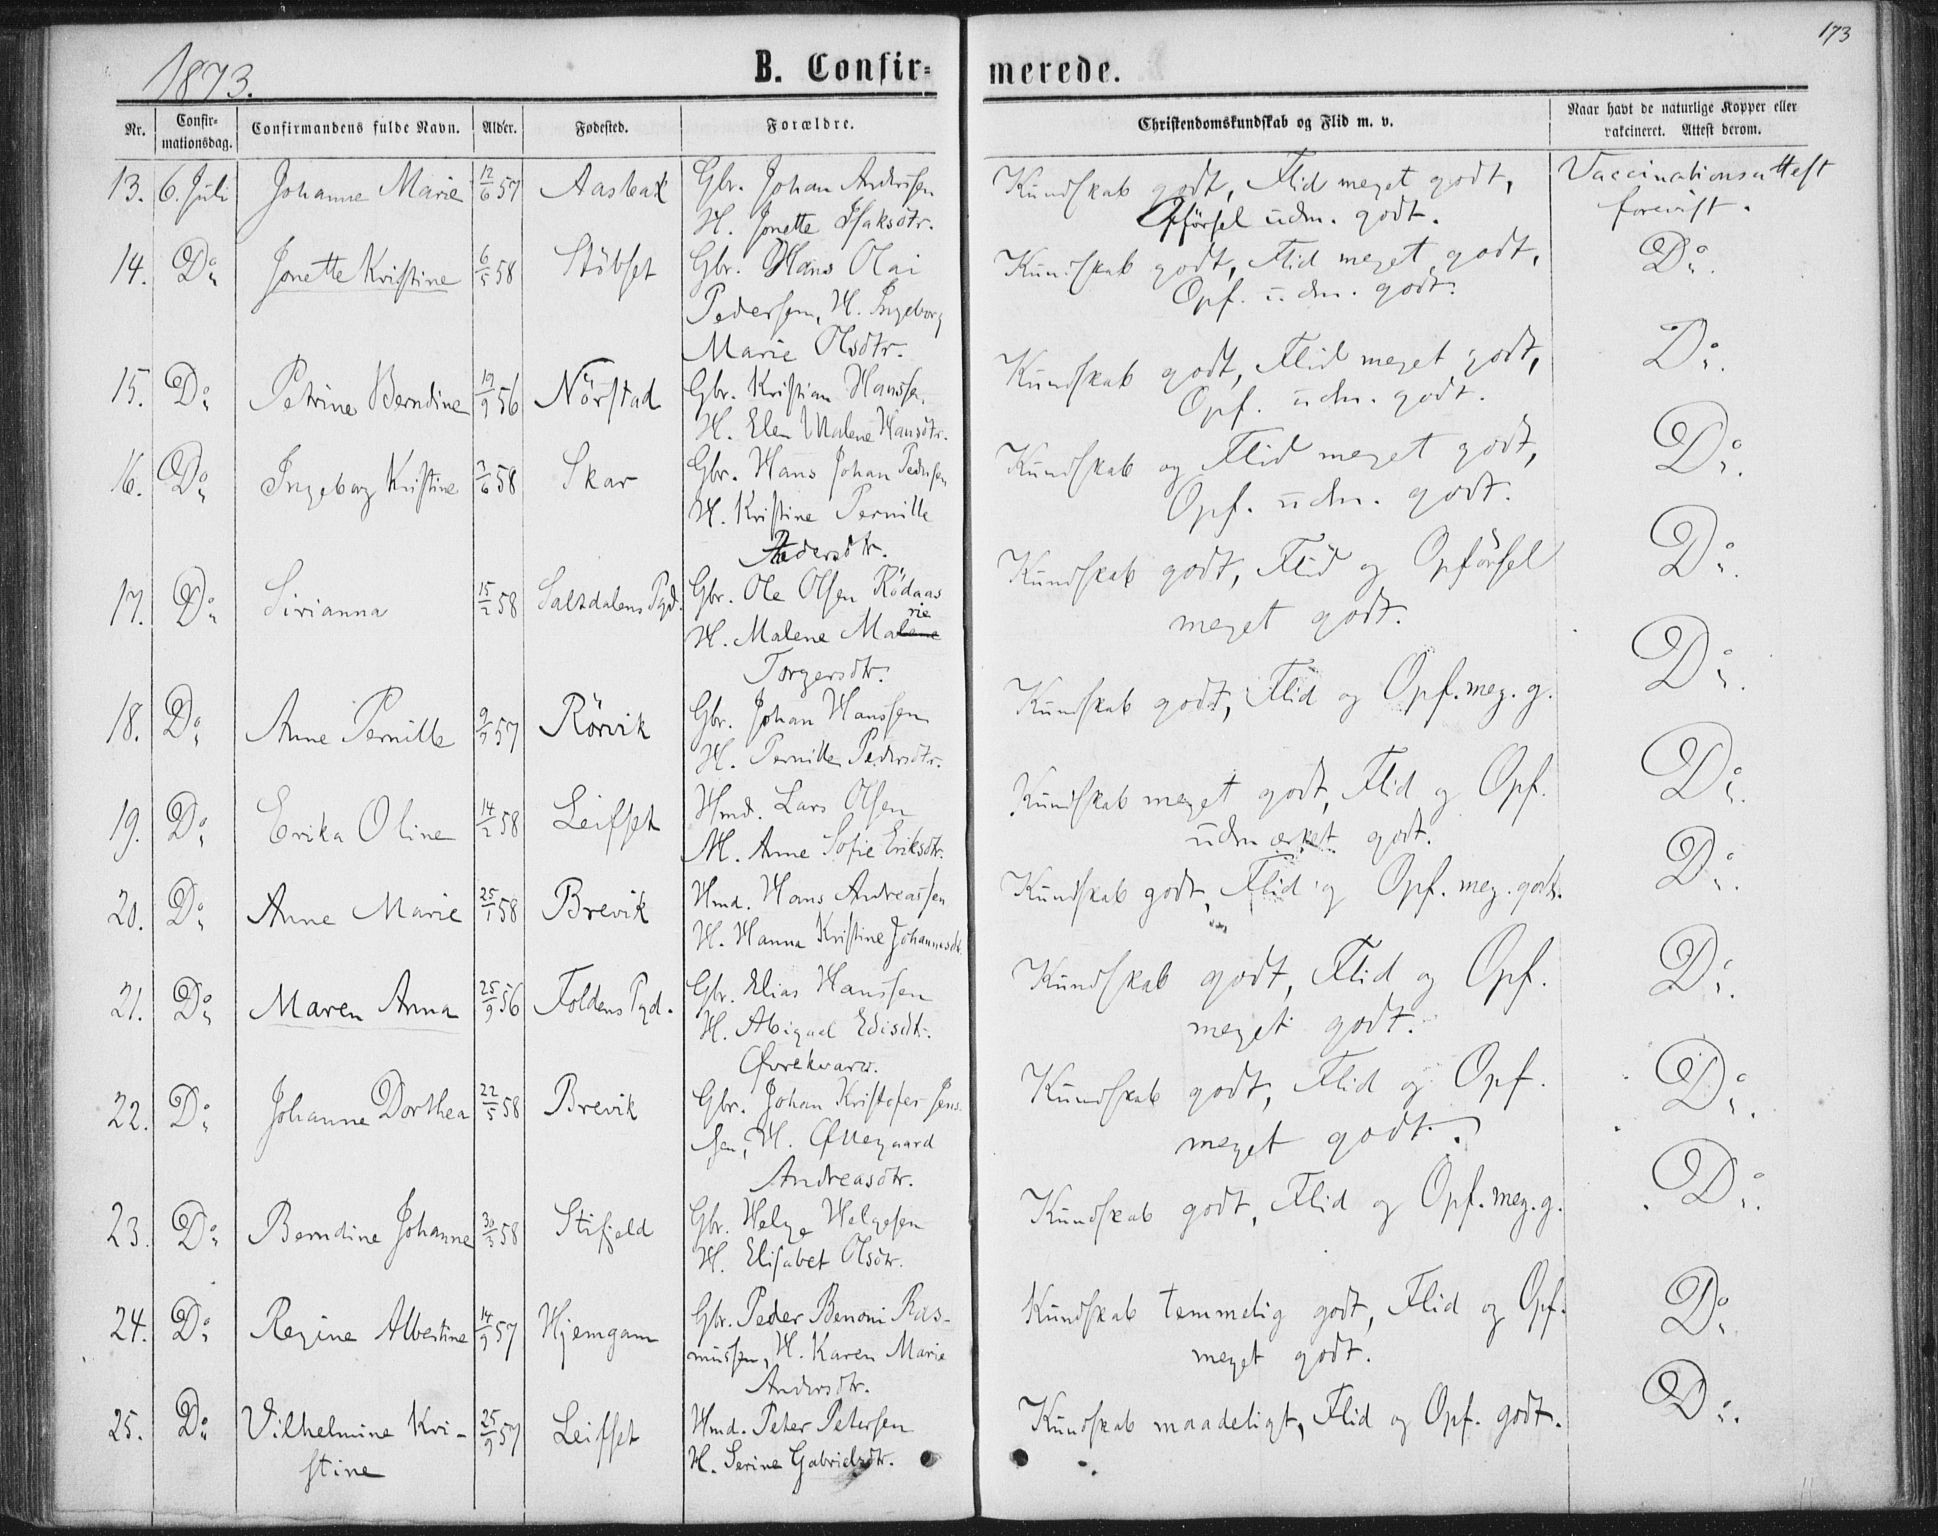 173
1873.
B. Confir= merede.
Nr. Confir=mationsdag. Confirmandens fulde Navn. Alder. Fødested. Forældre. Christendomskundskab og Flid m. v. Naar havt de naturlige Kopper eller vakcineret. Attest derom.
13. 6. Juli Johanne Marie 12/6 57 Aasbak Gbr. Johan Andersen Kundskab godt, Flid meget godt, Vaccinationsattest
H. Jonette Isaksdtr. Opførsel udm. godt. forevist.
14. Do Jonette Kristine 6/5 58 Stöbset Gbr. Hans Olai Kundskab godt, Flid meget godt, Do.
Pedersen, H. Ingeborg Opf. udm. godt.
Marie Olsdtr.
15. Do Petrine Berndine 19/9 56 Nörstad Gbr. Kristian Hanssen Kundskab godt, Flid meget godt, Do.
H. Elen Malene Hansdtr. Opf. udm. godt.
16. Do Ingeborg Kristine /6 58 Skar Gbr. Hans Johan Pedersen Kundskab og Flid meget godt, Do.
H. Kristine Pernille Opf. udm. godt.
Pedersdtr.
17. Do Sirianna 15/2 58 Saltdalens Pgd. Gbr. Ole Olsen Rödaas Kundskab godt, Flid og Opförsel Do.
H. Malene Marie meget godt.
Torgersdtr.
18. Do Anne Pernille 9/7 57 Rörvik Gbr. Johan Hanssen Kundskab godt, Flid og Opf. meg. g. Do.
H. Pernille Pedersdtr.
19. Do Erika Oline 14/2 58 Leifset Hmd. Lars Olsen Kundskab meget godt, Flid og Opf. Do.
M. Anne Sofie Eriksdtr. udmærket godt.
20. Do Anne Marie 25/1 58 Brevik Hmd. Hans Andreassen Kundskab godt, Flid og Opf. meg. godt. Do.
H. Hanna Kristine Johannesdtr.
21. Do Maren Anna 25/9 56 Foldens Pgd. Gbr. Elias Hanssen Kundskab godt, Flid og Opf. Do.
H. Abigael Edisdtr. meget godt.
Øvrekvarv.
22. Do Johanne Dorthea 22/5 58 Brevik Gbr. Johan Kristofer Jens- Kundskab godt, Flid og Opf. Do.
sen, H. Øllegaard meget godt.
Andreasdtr.
23. Do Berndine Johanne 30/3 58 Stifjeld Gbr. Helge Helgesen Kundskab godt, Flid og Opf. meg. g. Do.
H. Elisabet Olsdtr.
24. Do Regine Albertine 14/9 57 Hjemgam Gbr. Peder Benoni Ras- Kundskab temmelig godt, Flid og Opf. Do.
mussen, H. Karen Marie meget godt.
Andersdtr.
25. Do Vilhelmine Kri- 25/9 57 Leifset Hmd. Peter Petersen Kundskab maadeligt, Flid og Opf. godt. Do.
stine H. Serine Gabrielsdtr.